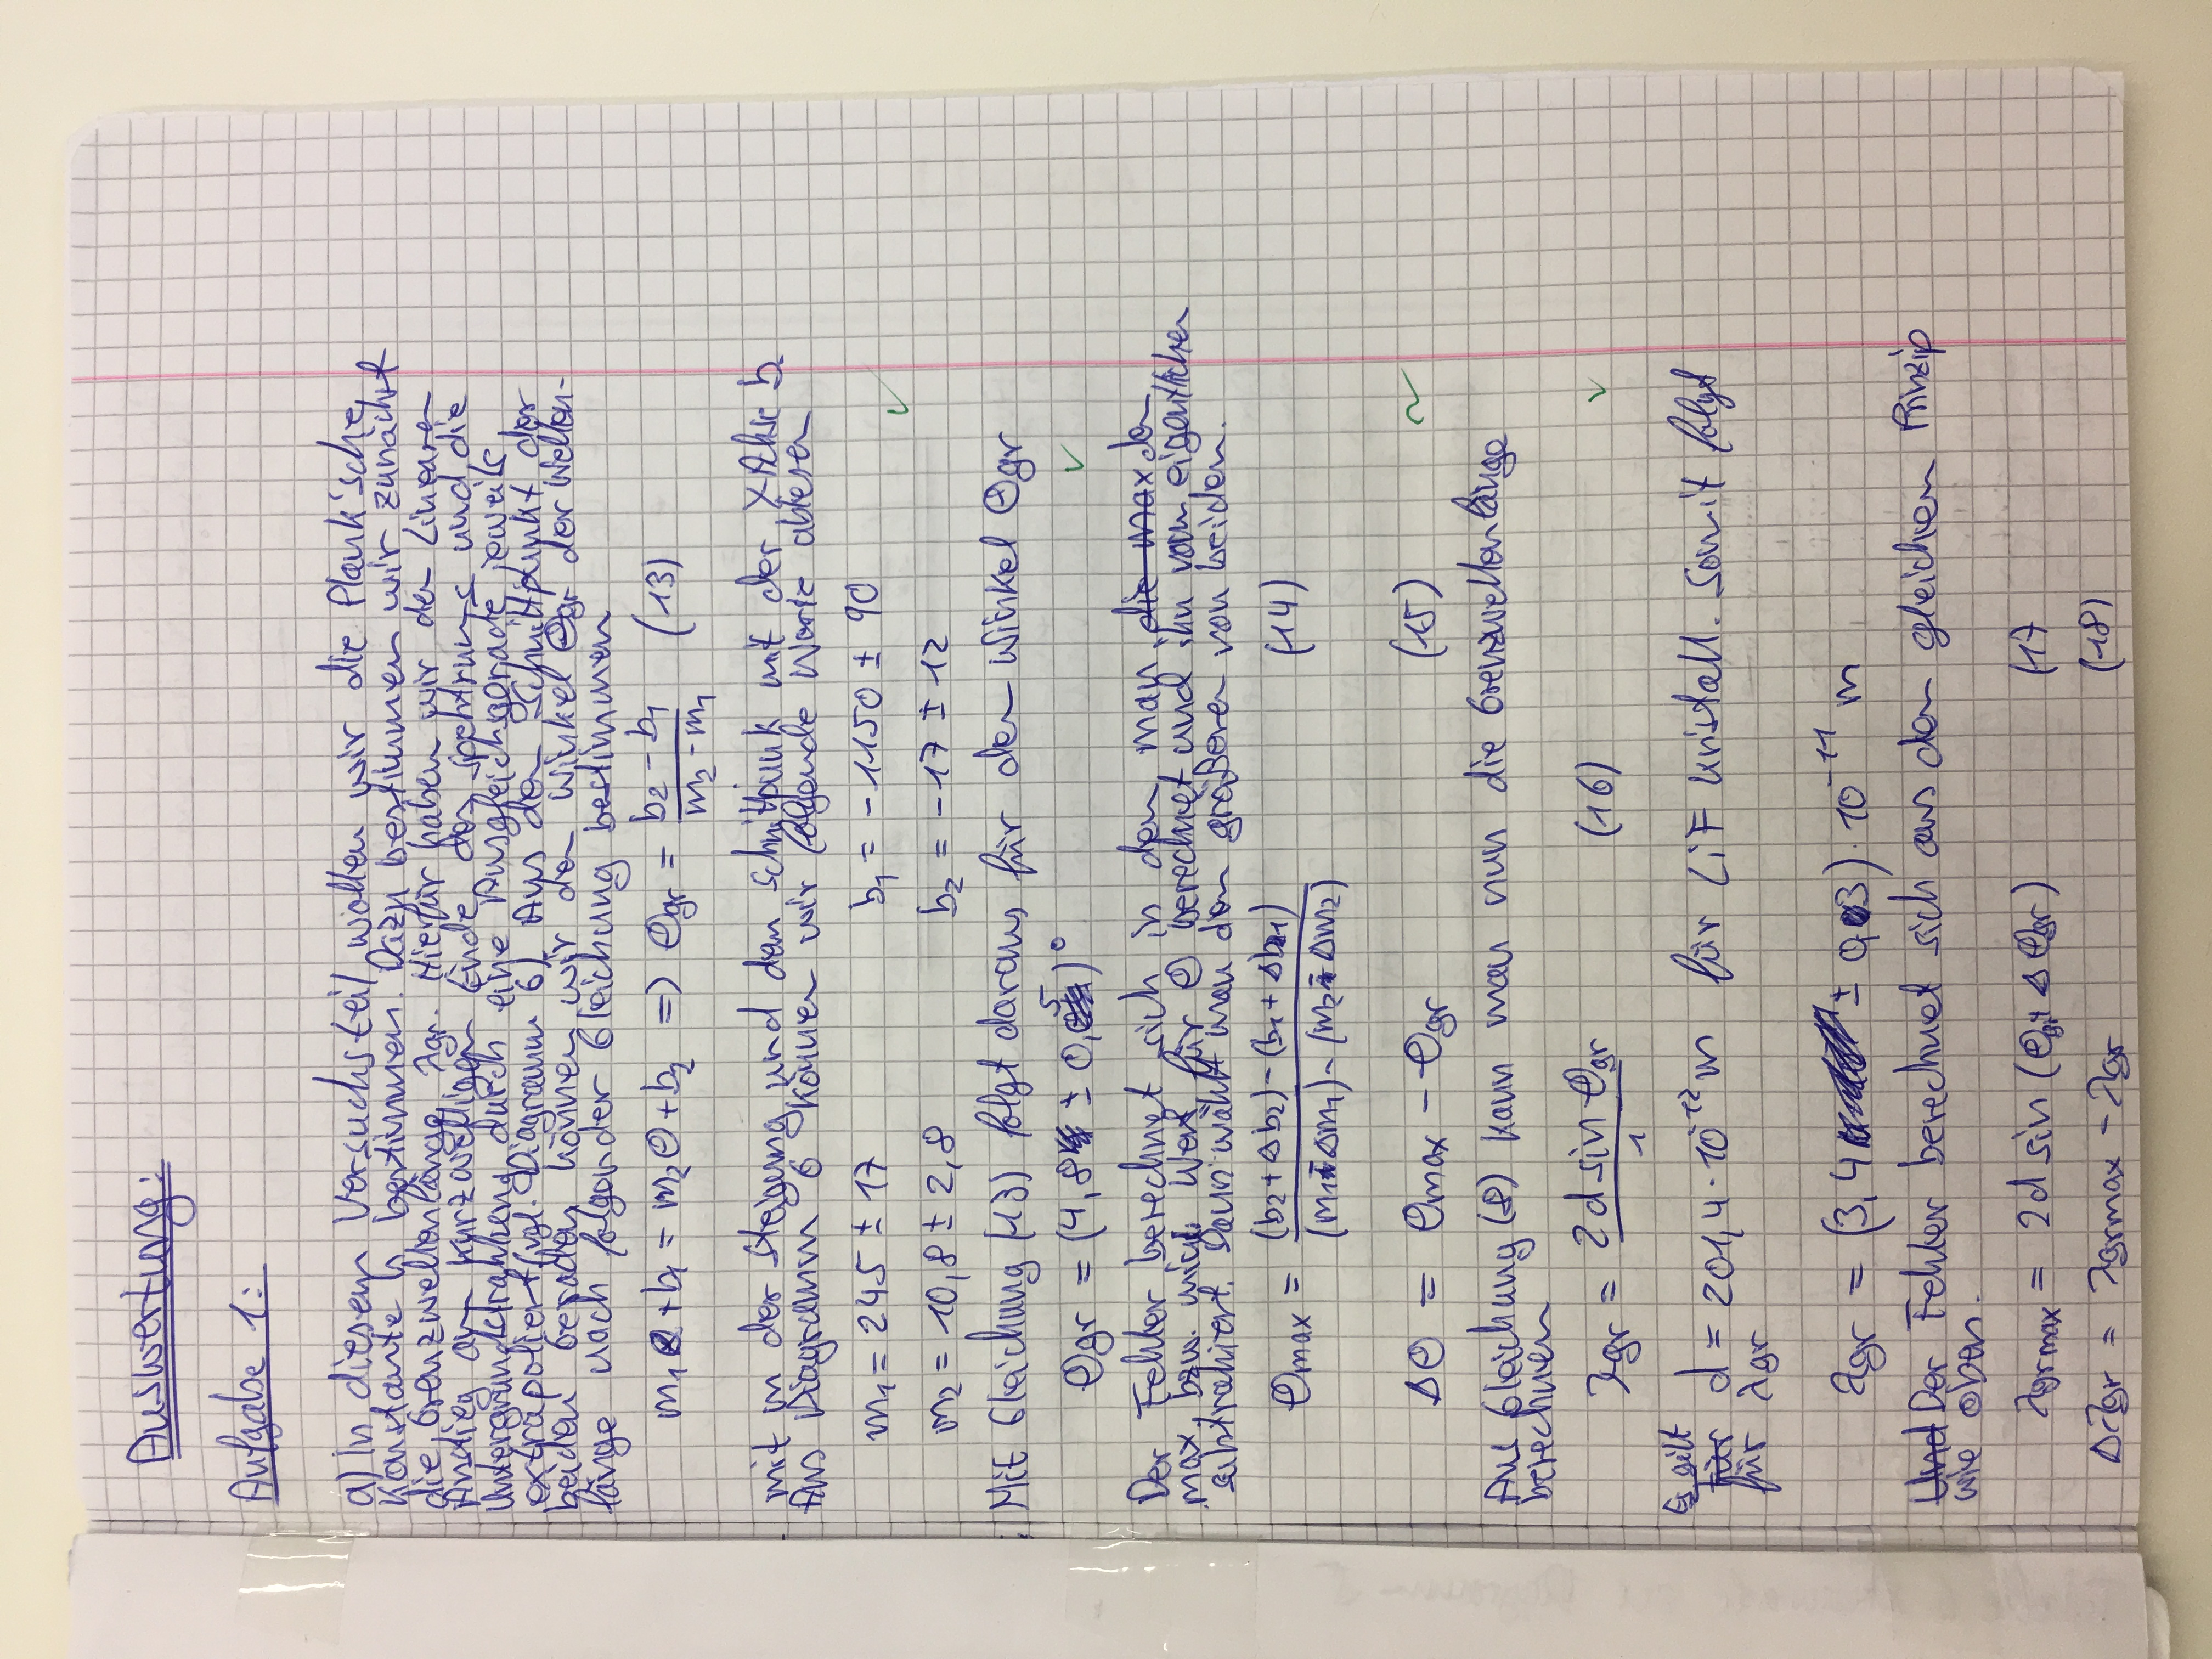 Auswertung:
Aufgabe 1:
a) In diesem Versuchsteil wollen wir die Plank'sche
Konstante h bestimmen. Dazu bestimmen wir zunächst
die Grenzwellenlänge λgr. Hierfür haben wir den Linearen
Anstieg am kurzwelligen Ende des Spektrums und die
Untergrundstrahlung durch eine Ausgleichsgerade jeweils
extrapoliert (vgl. Diagramm 6). Aus dem Schnittpunkt der
beiden Geraden können wir den Winkel Θgr der Wellen-
länge nach folgender Gleichung bestimmen
m₁Θ + b₁ = m₂Θ + b₂ => Θgr = (b₂ - b₁)/(m₂ - m₁) (13)
mit m der Steigung und dem Schnittpunk mit der Y Achse b.
Aus Diagramm 6 können wir folgende Werte ablesen
m₁ = 245 ± 17 b₁ = -1150 ± 90 ✓
m₂ = 10,8 ± 2,8 b₂ = -17 ± 12
Mit Gleichung (13) folgt daraus für den Winkel Θgr
Θgr = (4,8 ± 0,5)° ✓
Der Fehler berechnet sich in dem man die max den
max. bzw. min. Wert für Θ berechnet und ihn vom eigentlichen
subtrahiert. Dann wählt man den größeren von beiden.
Θmax = ((b₂ + Δb₂) - (b₁ + Δb₁))/((m₁ - Δm₁) - (m₂ - Δm₂)) (14)
ΔΘ = Θmax - Θgr (15) ~
Aus Gleichung (8) kann man nun die Grenzwellenlänge
berechnen
λgr = 2d sin Θgr / 1 (16) ✓
Es gilt
für d = 201,4 · 10⁻¹² m für LiF Kristall. Somit folgt
für λgr
λgr = (3,4 ± 0,3) · 10⁻¹¹ m
Und Der Fehler berechnet sich aus dem gleichen Prinzip
wie oben.
λgrmax = 2d sin (Θgr + ΔΘgr) (17
Δλgr = λgrmax - λgr (18)